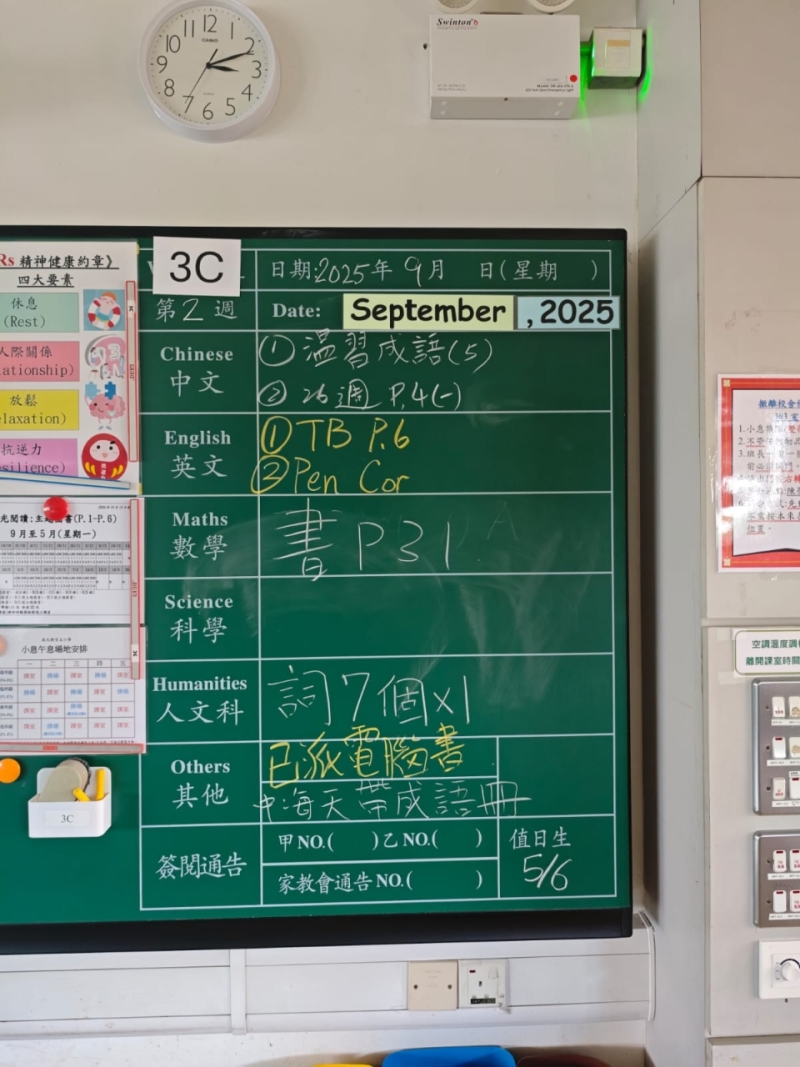 12
1
2
3
4
5
6
7
8
9
10
11
CASIO
Swinton
Rs 精神健康約章》
四大要素
休息
(Rest)
人際關係
ationship)
放鬆
elaxation)
抗逆力
silience)
光閱讀:主題圖書(P.1-P.6)
9月至5月(星期一)
小息午息場地安排
一 二 三 四 五
3C
3C
日期:2025年 9月 日(星期 )
第 2 週
Date: September , 2025
Chinese
中文
① 溫習成語(5)
② 26週 P.4(一)
English
英文
① TB P.6
② Pen Cor
Maths
數學
書 P31
Science
科學
Humanities
人文科
詞7個x1
Others
其他
已派電腦書
中海天帶成語冊
簽閱通告
甲NO.( )乙NO.( )
家教會通告NO.( )
值日生
5/6
撤離校會
1.小息
2.不
3.班長
位置。
空調溫度調
離開課室時關